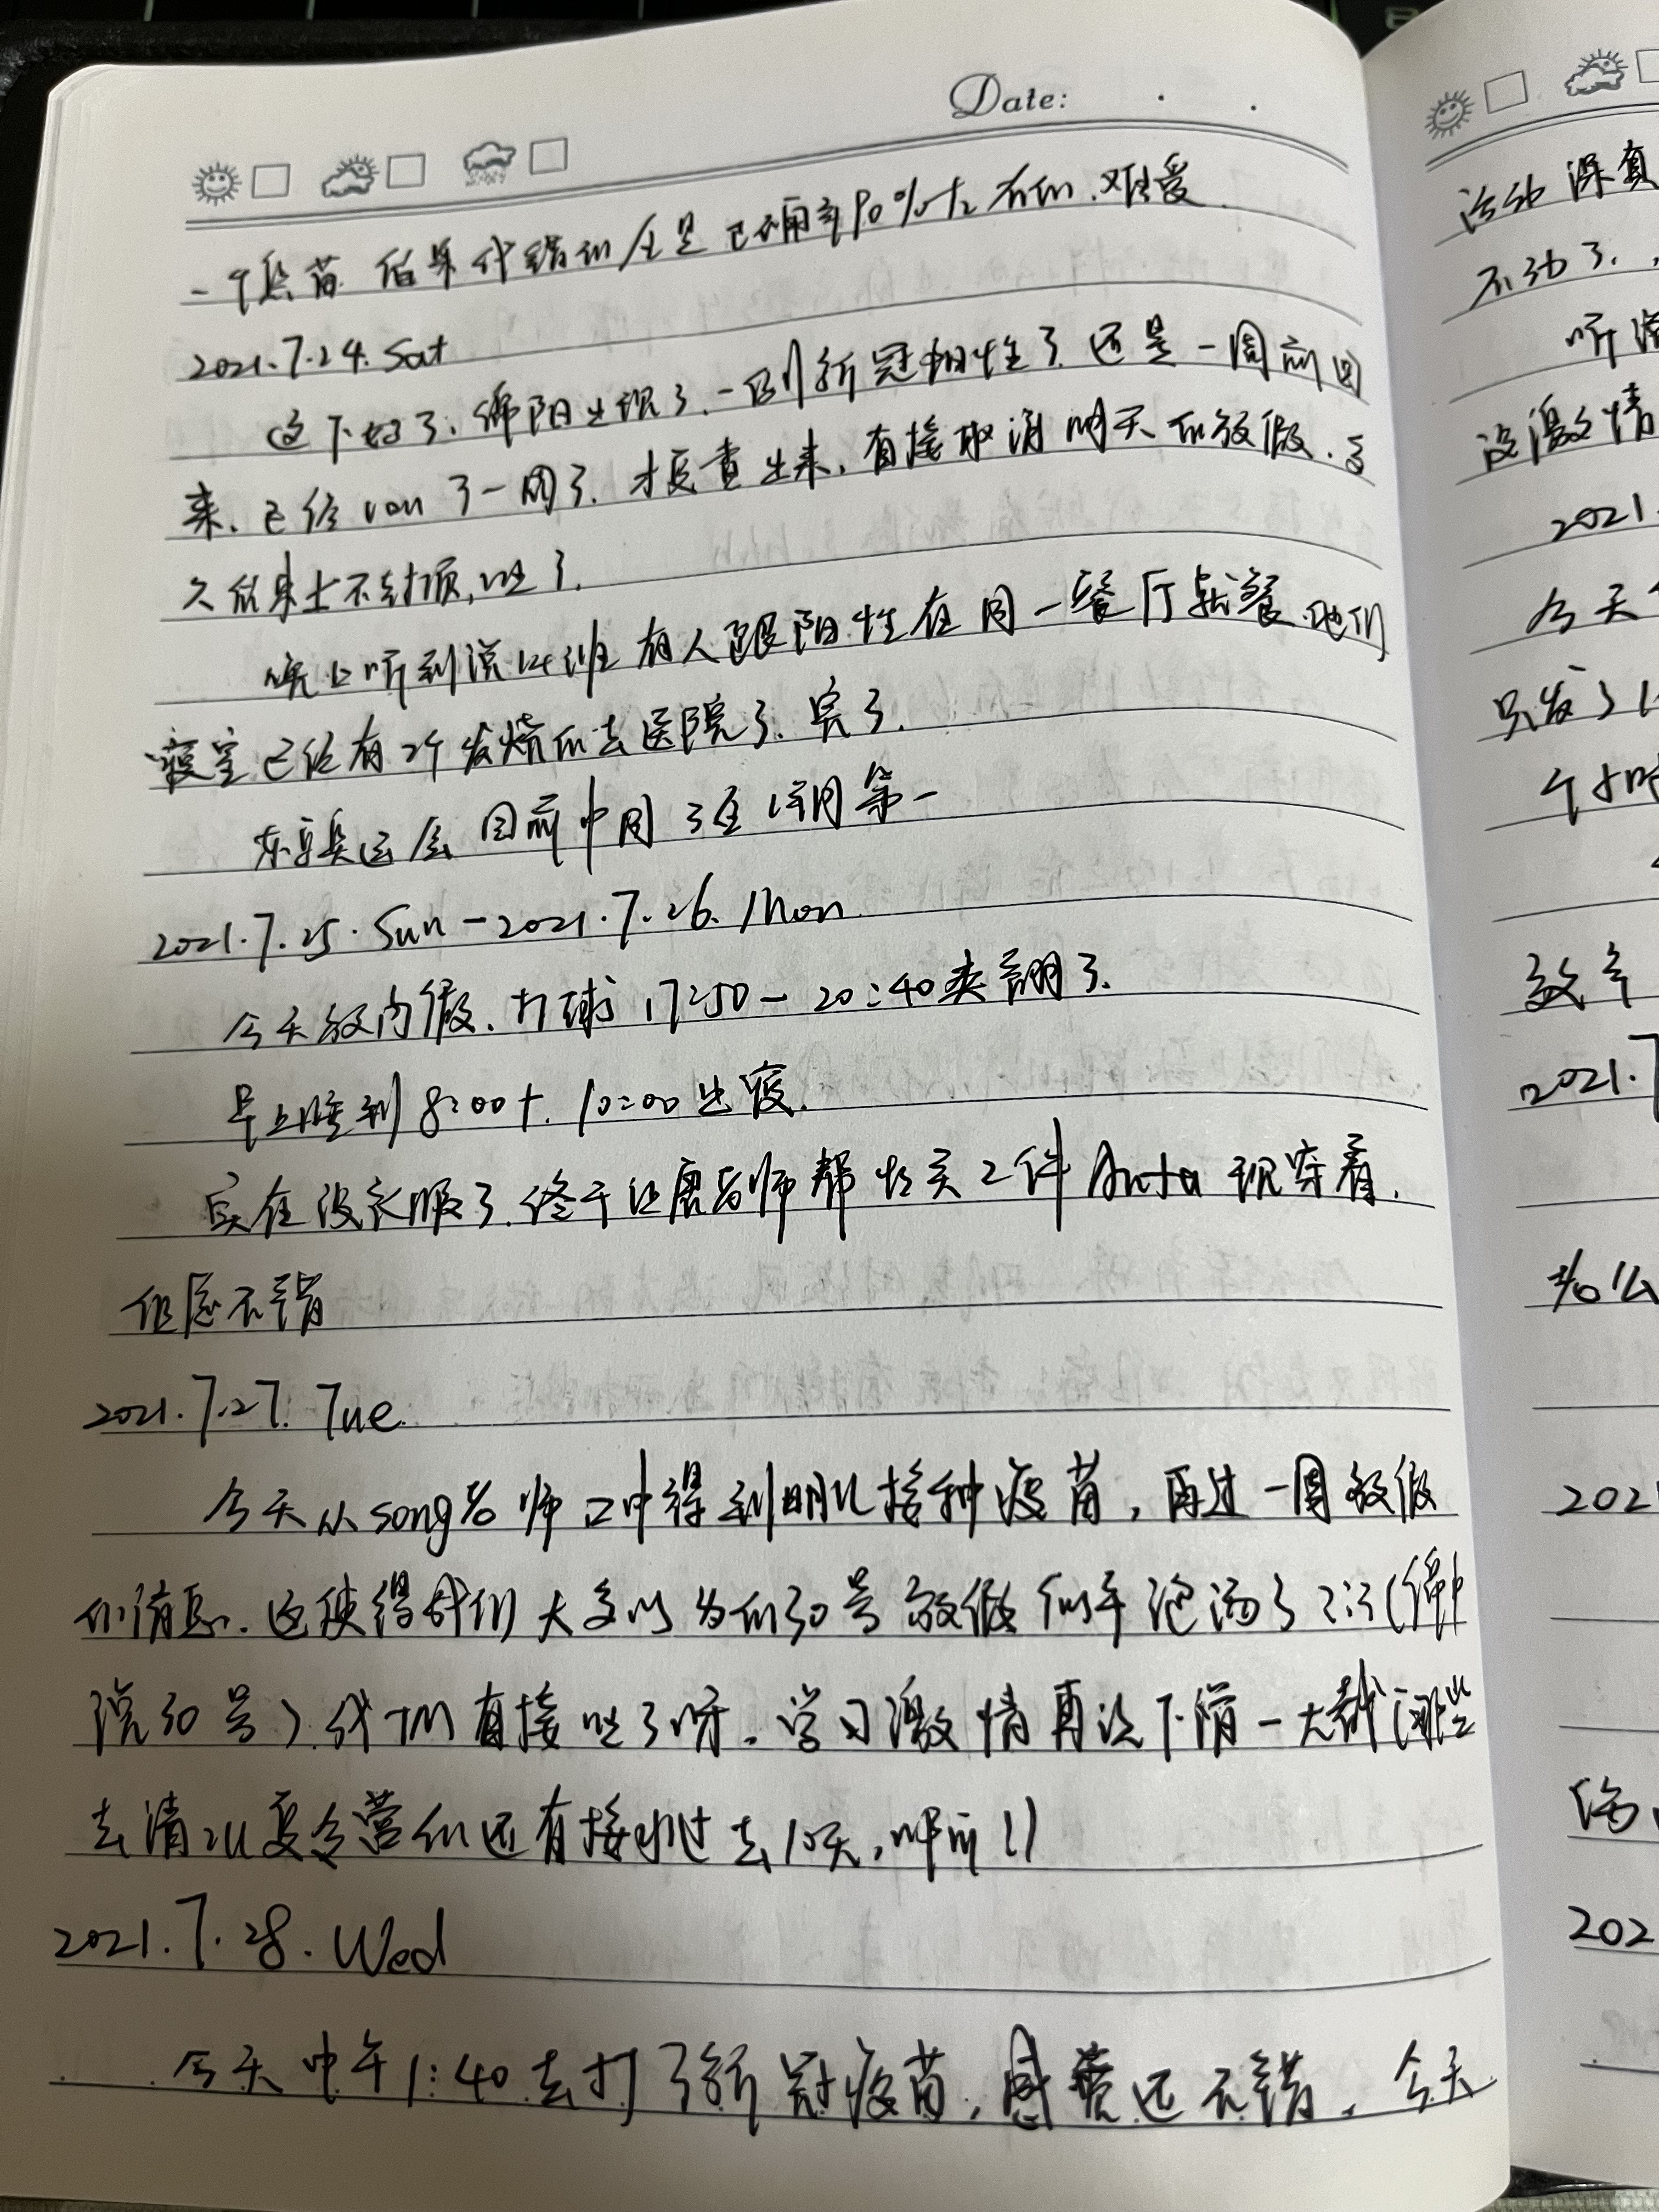 Date: . .
一个 正确率90%左右的.难受.
2021.7.24.Sat
这下好了,绵阳出现了.一例新冠阳性了.还是一周前回
来.已经 了一周了.才检查出来,直接取消明天的放假.
不封顶,吐了.
晚上听到说14班有人跟阳性在同一餐厅就餐.他们
寝室已经有2个发烧的去医院了.完了.
东京奥运会 目前中国3金1铜第一
2021.7.25.Sun-2021.7.26.Mon.
今天放内假.打球17:50-20:40爽翻了.
早上睡到8:00+.10:00出寝.
实在没衣服了.终于让唐老师帮忙买2件Anta 现穿着.
但愿不错
2021.7.27.Tue.
今天从song老师口中得到明儿接种疫苗,再过一周放假
的消息.这使得我们大多以为的30号放假似乎泡汤了
院30号).我们直接吐了呀。学习激情再次下滑一大截(那些
去清北夏令营的还有接种过去10天,
2021.7.28.Wed
今天中午1:40去打了新冠疫苗,感觉还不错.今天
活动课真
不动了.
听
没激情
2021.
今天
只发了
个小时
效率
2021.7
202
202